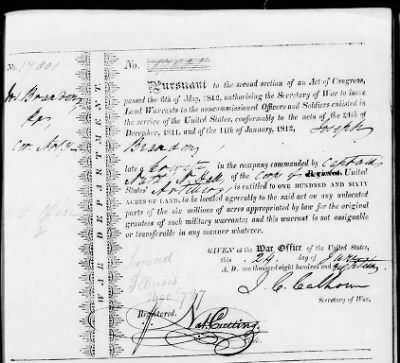 No. 17001
No.
Jos. Brandon
Cor. Arty
WAR DEPARTMENT.
PURSUANT to the second section of an Act of Congress,
passed the 6th of May, 1812, authorising the Secretary of War to issue
Land Warrants to the noncommissioned Officers and Soldiers enlisted in
the service of the United States, conformably to the acts of the 24th of
December, 1811, and of the 11th of January, 1812, Joseph
Brandon
late a Private in the company commanded by Captain
of the Corps of Regiment United
States' Artillery is entitled to ONE HUNDRED AND SIXTY
ACRES OF LAND, to be located agreeably to the said act on any unlocated
parts of the six millions of acres appropriated by law for the original
grantees of such military warrants; and this warrant is not assignable
or transferable in any manner whatever.
GIVEN at the War Office of the United States,
this 24 day of June
A. D. one thousand eight hundred and eighteen
J. C. Calhoun
Secretary of War.
Located
Illinois
page 797
Registered.
Nat. Cutting